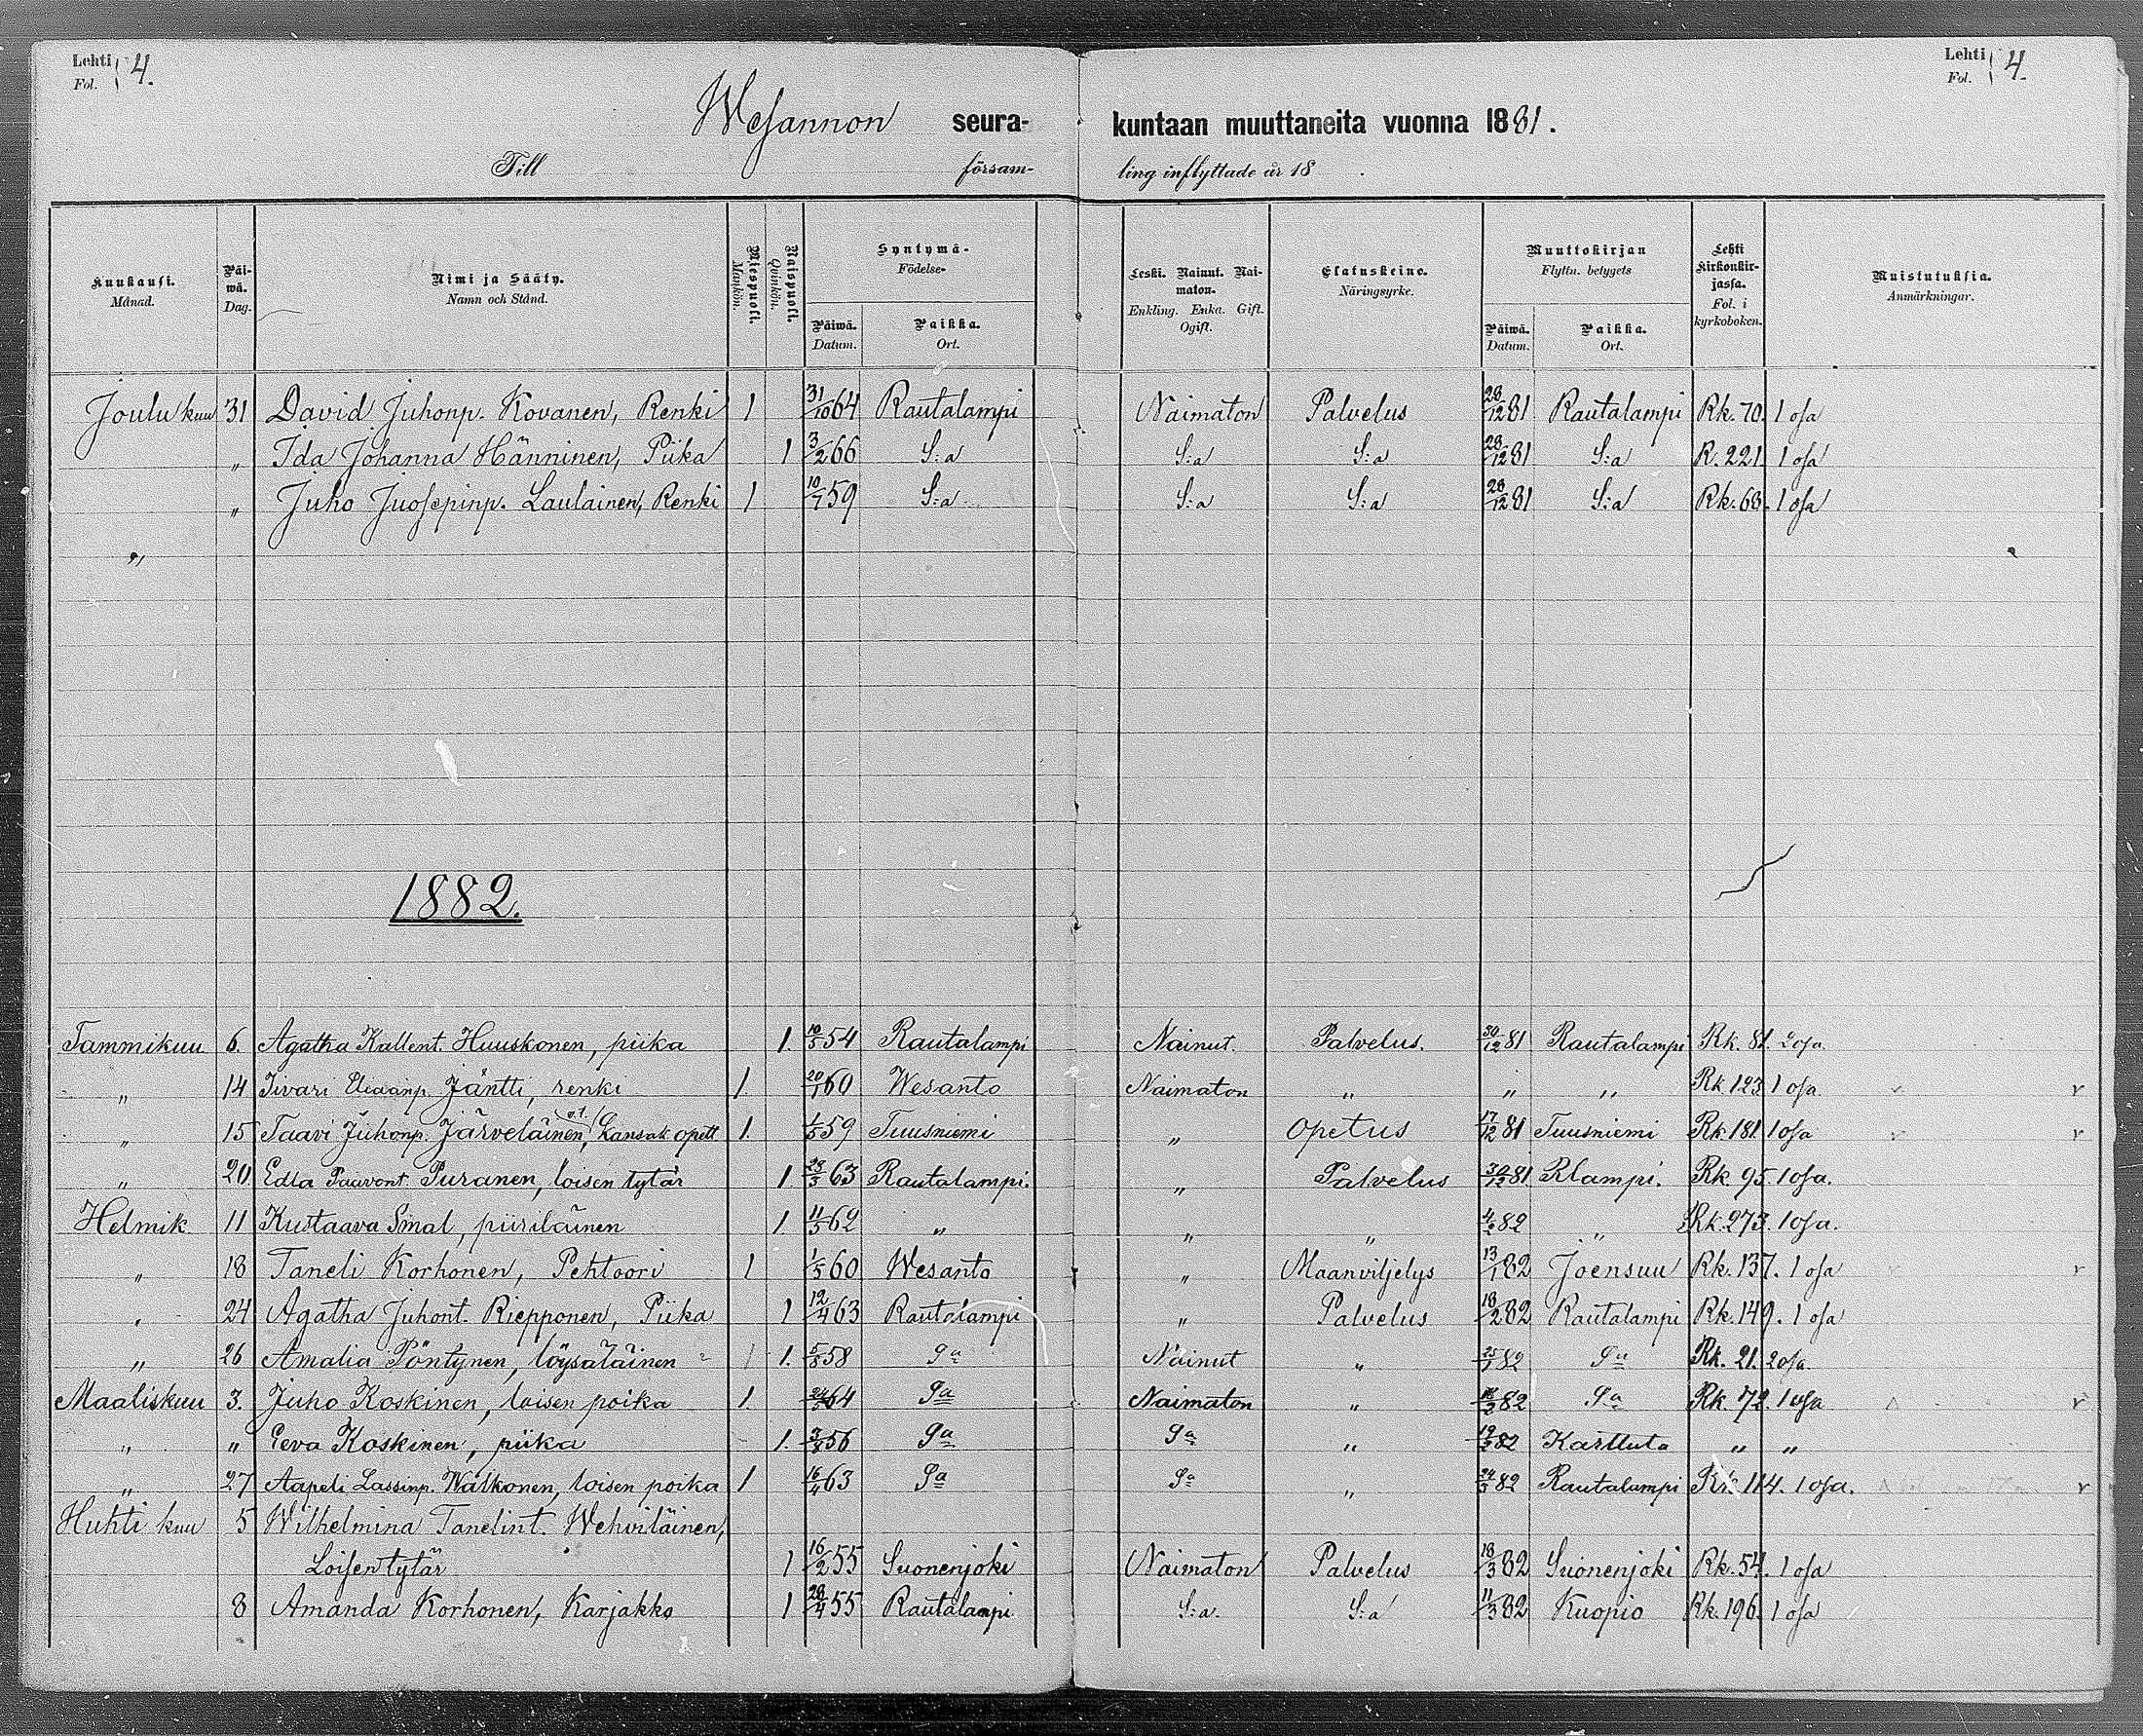 Lehti 4.
Fol.
Lehti 4.
Fol.
Wesannon seurakuntaan muuttaneita vuonna 1881.
Till församling inflyttade år 18 .
Kuukausi. Månad. Päiwä. Dag. Nimi ja Sääty. Namn och Stånd. Miespuoli. Mankön. Naispuoli. Quinkön. Syntymä- Födelse- Päiwä. Datum. Paikka. Ort. Leski. Nainut. Naimaton. Enkling. Enka. Gift. Ogift. Elatuskeino. Näringsyrke. Muuttokirjan Flyttn. betygets Päiwä. Datum. Paikka. Ort. Lehti Kirkonkirjassa. Fol. i kyrkoboken. Muistutuksia. Anmärkningar.
Joulukuu 31 David Juhonp. Kovanen, Renki 1 31/10 64 Rautalampi Naimaton Palvelus 28/12 81 Rautalampi Rk. 70. 1 osa
„ Ida Johanna Hänninen, Piika 1 3/2 66 S:a S:a S:a 28/12 81 S:a R. 221. 1 osa
„ Juho Juosepinp. Laulainen, Renki 1 10/1 59 S:a S:a S:a 28/12 81 S:a Rk. 68. 1 osa
„
1882.
Tammikuu 6. Agatha Kallent. Huuskonen, piika 1. 10/5 54 Rautalampi Nainut. Palvelus. 30/12 81 Rautalampi Rk. 81. 2 osa.
„ 14 Iivari Eliaanp. Jäntti, renki 1. 20/1 60 Wesanto Naimaton „ „ „ Rk 123 1 osa
„ 15 Taavi Juhonp. Järveläinen, v.t. kansak. opett 1. 1/5 59 Tuusniemi „ Opetus 17/12 81 Tuusniemi Rk 181. 1 osa
„ 20 Edla Paavont Puranen, loisen tytär 1 28/5 63 Rautalampi. „ Palvelus 30/12 81 Rlampi. Rk 95. 1 osa.
Helmik. 11 Kustaava Smal, piiriläinen 1 11/5 62 „ „ „ 82 „ Rk. 273. 1 osa.
„ 18 Taneli Korhonen, Pehtoori 1 1/5 60 Wesanto „ Maanviljelys 13/1 82 Joensuu Rk. 137. 1 osa
„ 24 Agatha Juhont. Riepponen, Piika 1 12/4 63 Rautalampi „ Palvelus 18/2 82 Rautalampi Rk. 149. 1 osa
„ 26 Amalia Pöntynen, löysäläinen 1. 5/8 58 Sa Nainut „ 25/1 82 Sa Rk. 21. 2 osa.
Maaliskuu 3. Juho Koskinen, loisen poika 1. 64 Sa Naimaton „ 82 Sa Rk. 72. 1 osa
„ „ Eeva Koskinen, piika 1. 3/8 56 Sa Sa „ 82 Karttula „ „
„ 27 Aapeli Lassinp. Walkonen, loisen poika 1 16/4 63 Sa Sa „ 24/3 82 Rautalampi Rk. 114. 1 osa.
Huhtikuu 5 Wilhelmina Tanelint. Wehviläinen,
Loisentytär 1 16/2 55 Suonenjoki Naimaton Palvelus 18/3 82 Suonenjoki Rk. 54. 1 osa
8 Amanda Korhonen, Karjakko 1 28/4 55 Rautalampi S:a. S:a 11/3 82 Kuopio Rk. 196. 1 osa